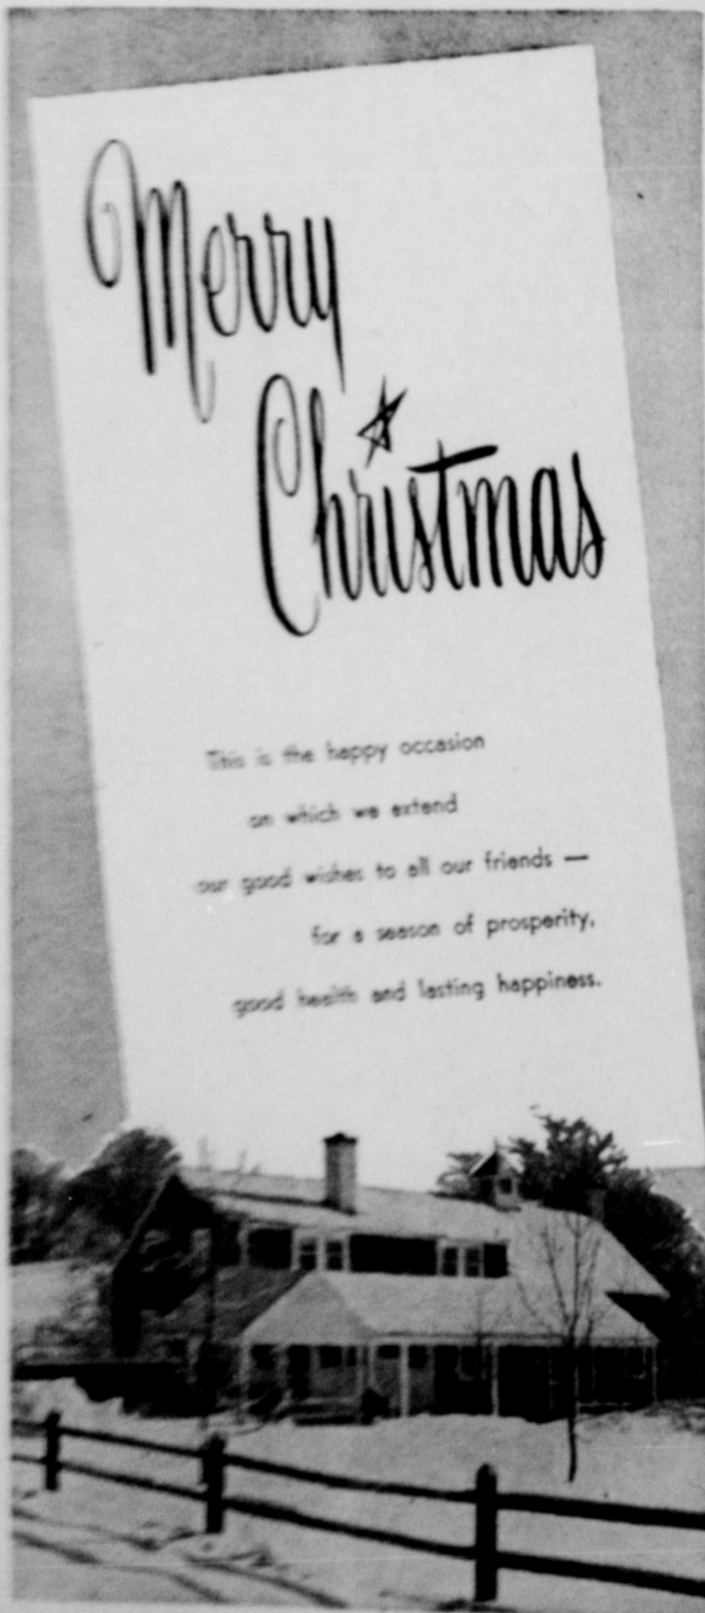 Merry
Christmas
This is the happy occasion
on which we extend
our good wishes to all our friends —
for a season of prosperity,
good health and lasting happiness.